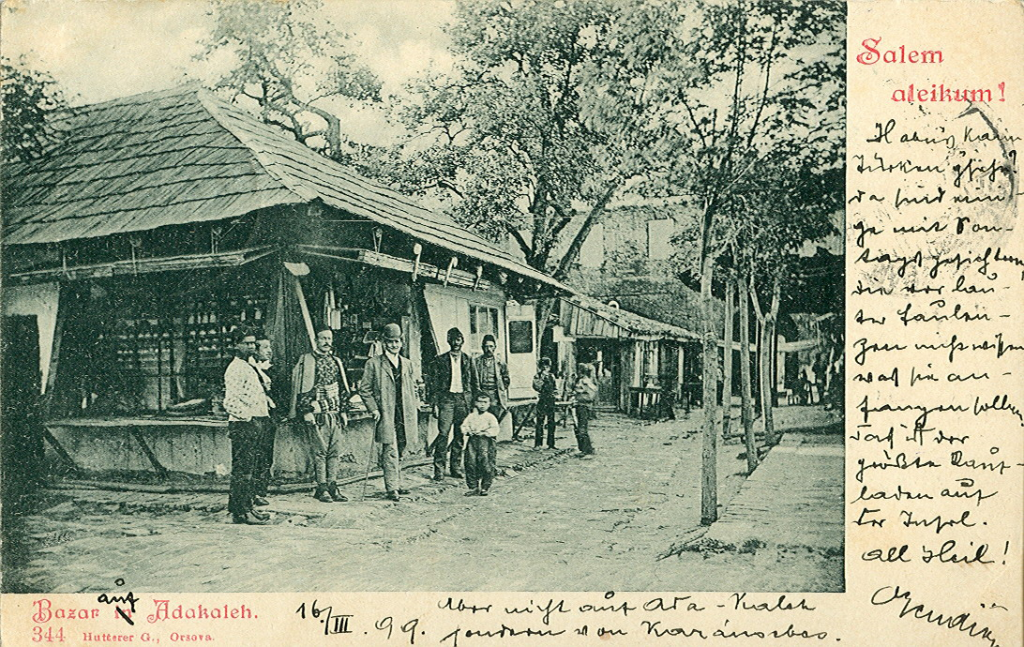 Salem
aleikum!
Türken
da sind
ge mit Son-
tagsgesichtern
die vor lau-
ter Faulen-
zen nicht wissen
was sie an-
fangen sollen
das ist der
größte Kauf-
laden auf
der Insel.
All Heil!
Bazar in auf Adakaleh.
344 Hutterer G., Orsova.
16/III. 99.
Aber nicht auf Ada-Kaleh
sondern von Karánsebes.